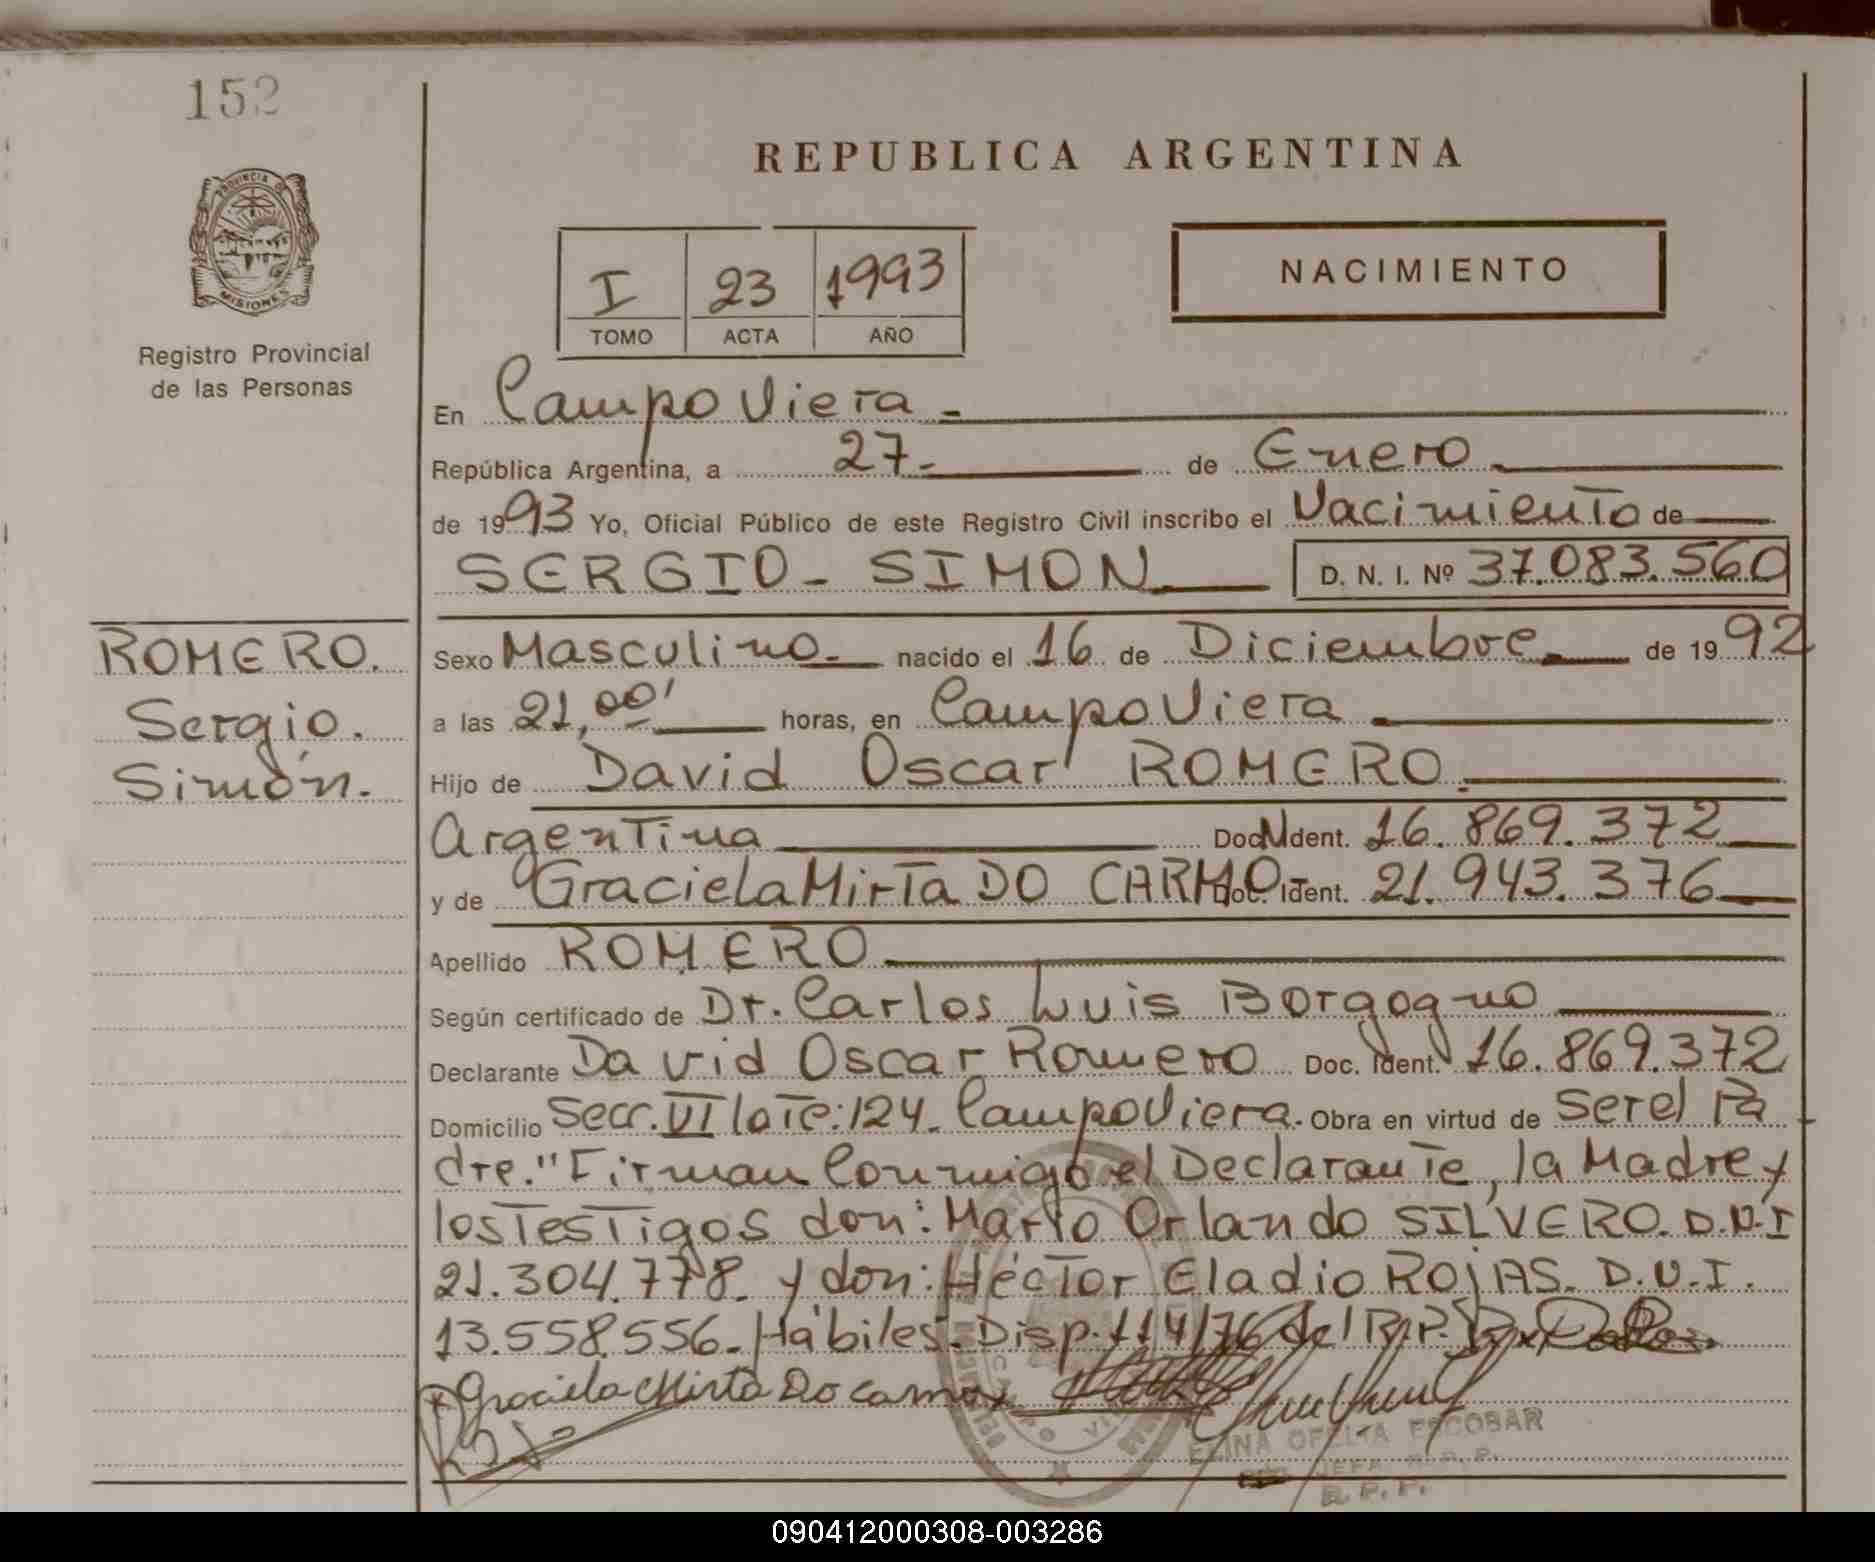 152
PROVINCIA DE
MISIONES
Registro Provincial
de las Personas
REPUBLICA ARGENTINA
I 23 1993
TOMO ACTA AÑO
NACIMIENTO
En Campo Viera
República Argentina, a 27 de Enero
de 1993 Yo, Oficial Público de este Registro Civil inscribo el Nacimiento de
SERGIO - SIMON D. N. I. Nº 37.083.560
ROMERO.
Sergio.
Simón.
Sexo Masculino. nacido el 16 de Diciembre de 1992
a las 21,00' horas, en Campo Viera
Hijo de David Oscar ROMERO
Argentina Doc. Ident. 16.869.372
y de Graciela Mirta DO CARMO Doc. Ident. 21.943.376
Apellido ROMERO
Según certificado de Dr. Carlos Luis Borgogno
Declarante David Oscar Romero Doc. Ident. 16.869.372
Domicilio Secc. VI lote: 124. Campo Viera. Obra en virtud de Ser el Pa
dre." Firman Conmigo el Declarante, la Madre y
los Testigos don: Mario Orlando SILVERO. D.N.I
21.304.778. y don: Héctor Eladio ROJAS. D.N.I.
13.558.556. Hábiles. Disp. 114/76 del R.P.P.
Graciela Mirta Do carmo
ELINA OFELIA ESCOBAR
JEFA R. P. P.
R. P. P.
090412000308-003286